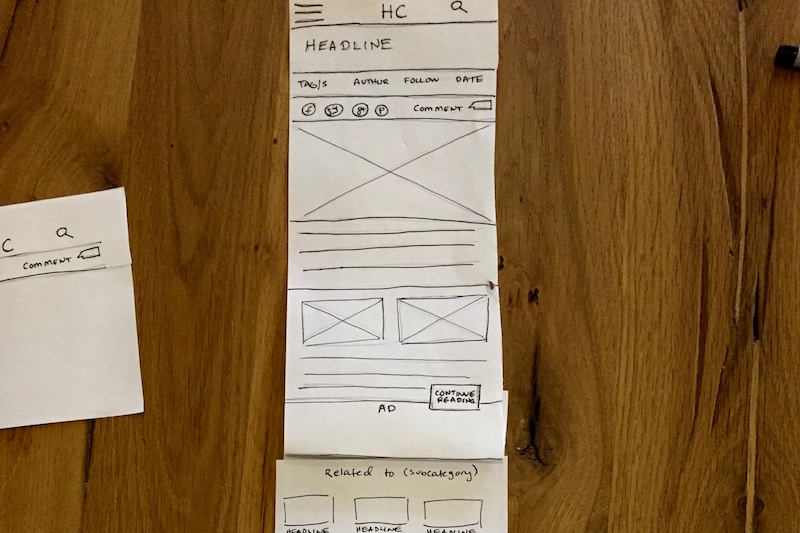 HC
HEADLINE
TAG/S AUTHOR FOLLOW DATE
f g+ P COMMENT
CONTINUE
READING
AD
Related to (subcategory)
HEADLINE HEADLINE HEADLINE
C
COMMENT